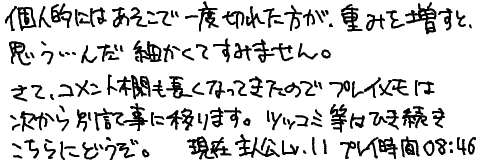 個人的にはあそこで一度切れた方が、重みを増すと、
思う…んだ 細かくてすみません。
さて、コメント欄も長くなってきたので プレイメモは
次から別記事に移ります。 ツッコミ等はひき続き
こちらにどうぞ。 現在主人公Lv.11 プレイ時間08:46